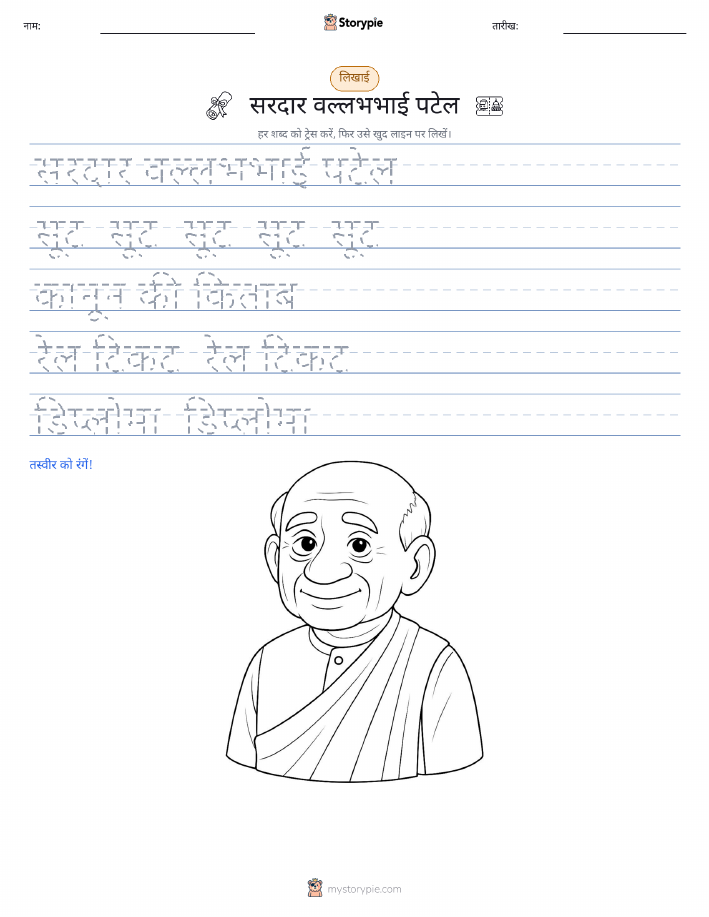 नाम:
Storypie
तारीख:
लिखाई
सरदार वल्लभभाई पटेल
हर शब्द को ट्रेस करें, फिर उसे खुद लाइन पर लिखें।
सरदार वल्लभभाई पटेल
सूट सूट सूट सूट सूट
कानून की किताब
रेल टिकट रेल टिकट
डिप्लोमा डिप्लोमा
तस्वीर को रंगें!
mystorypie.com